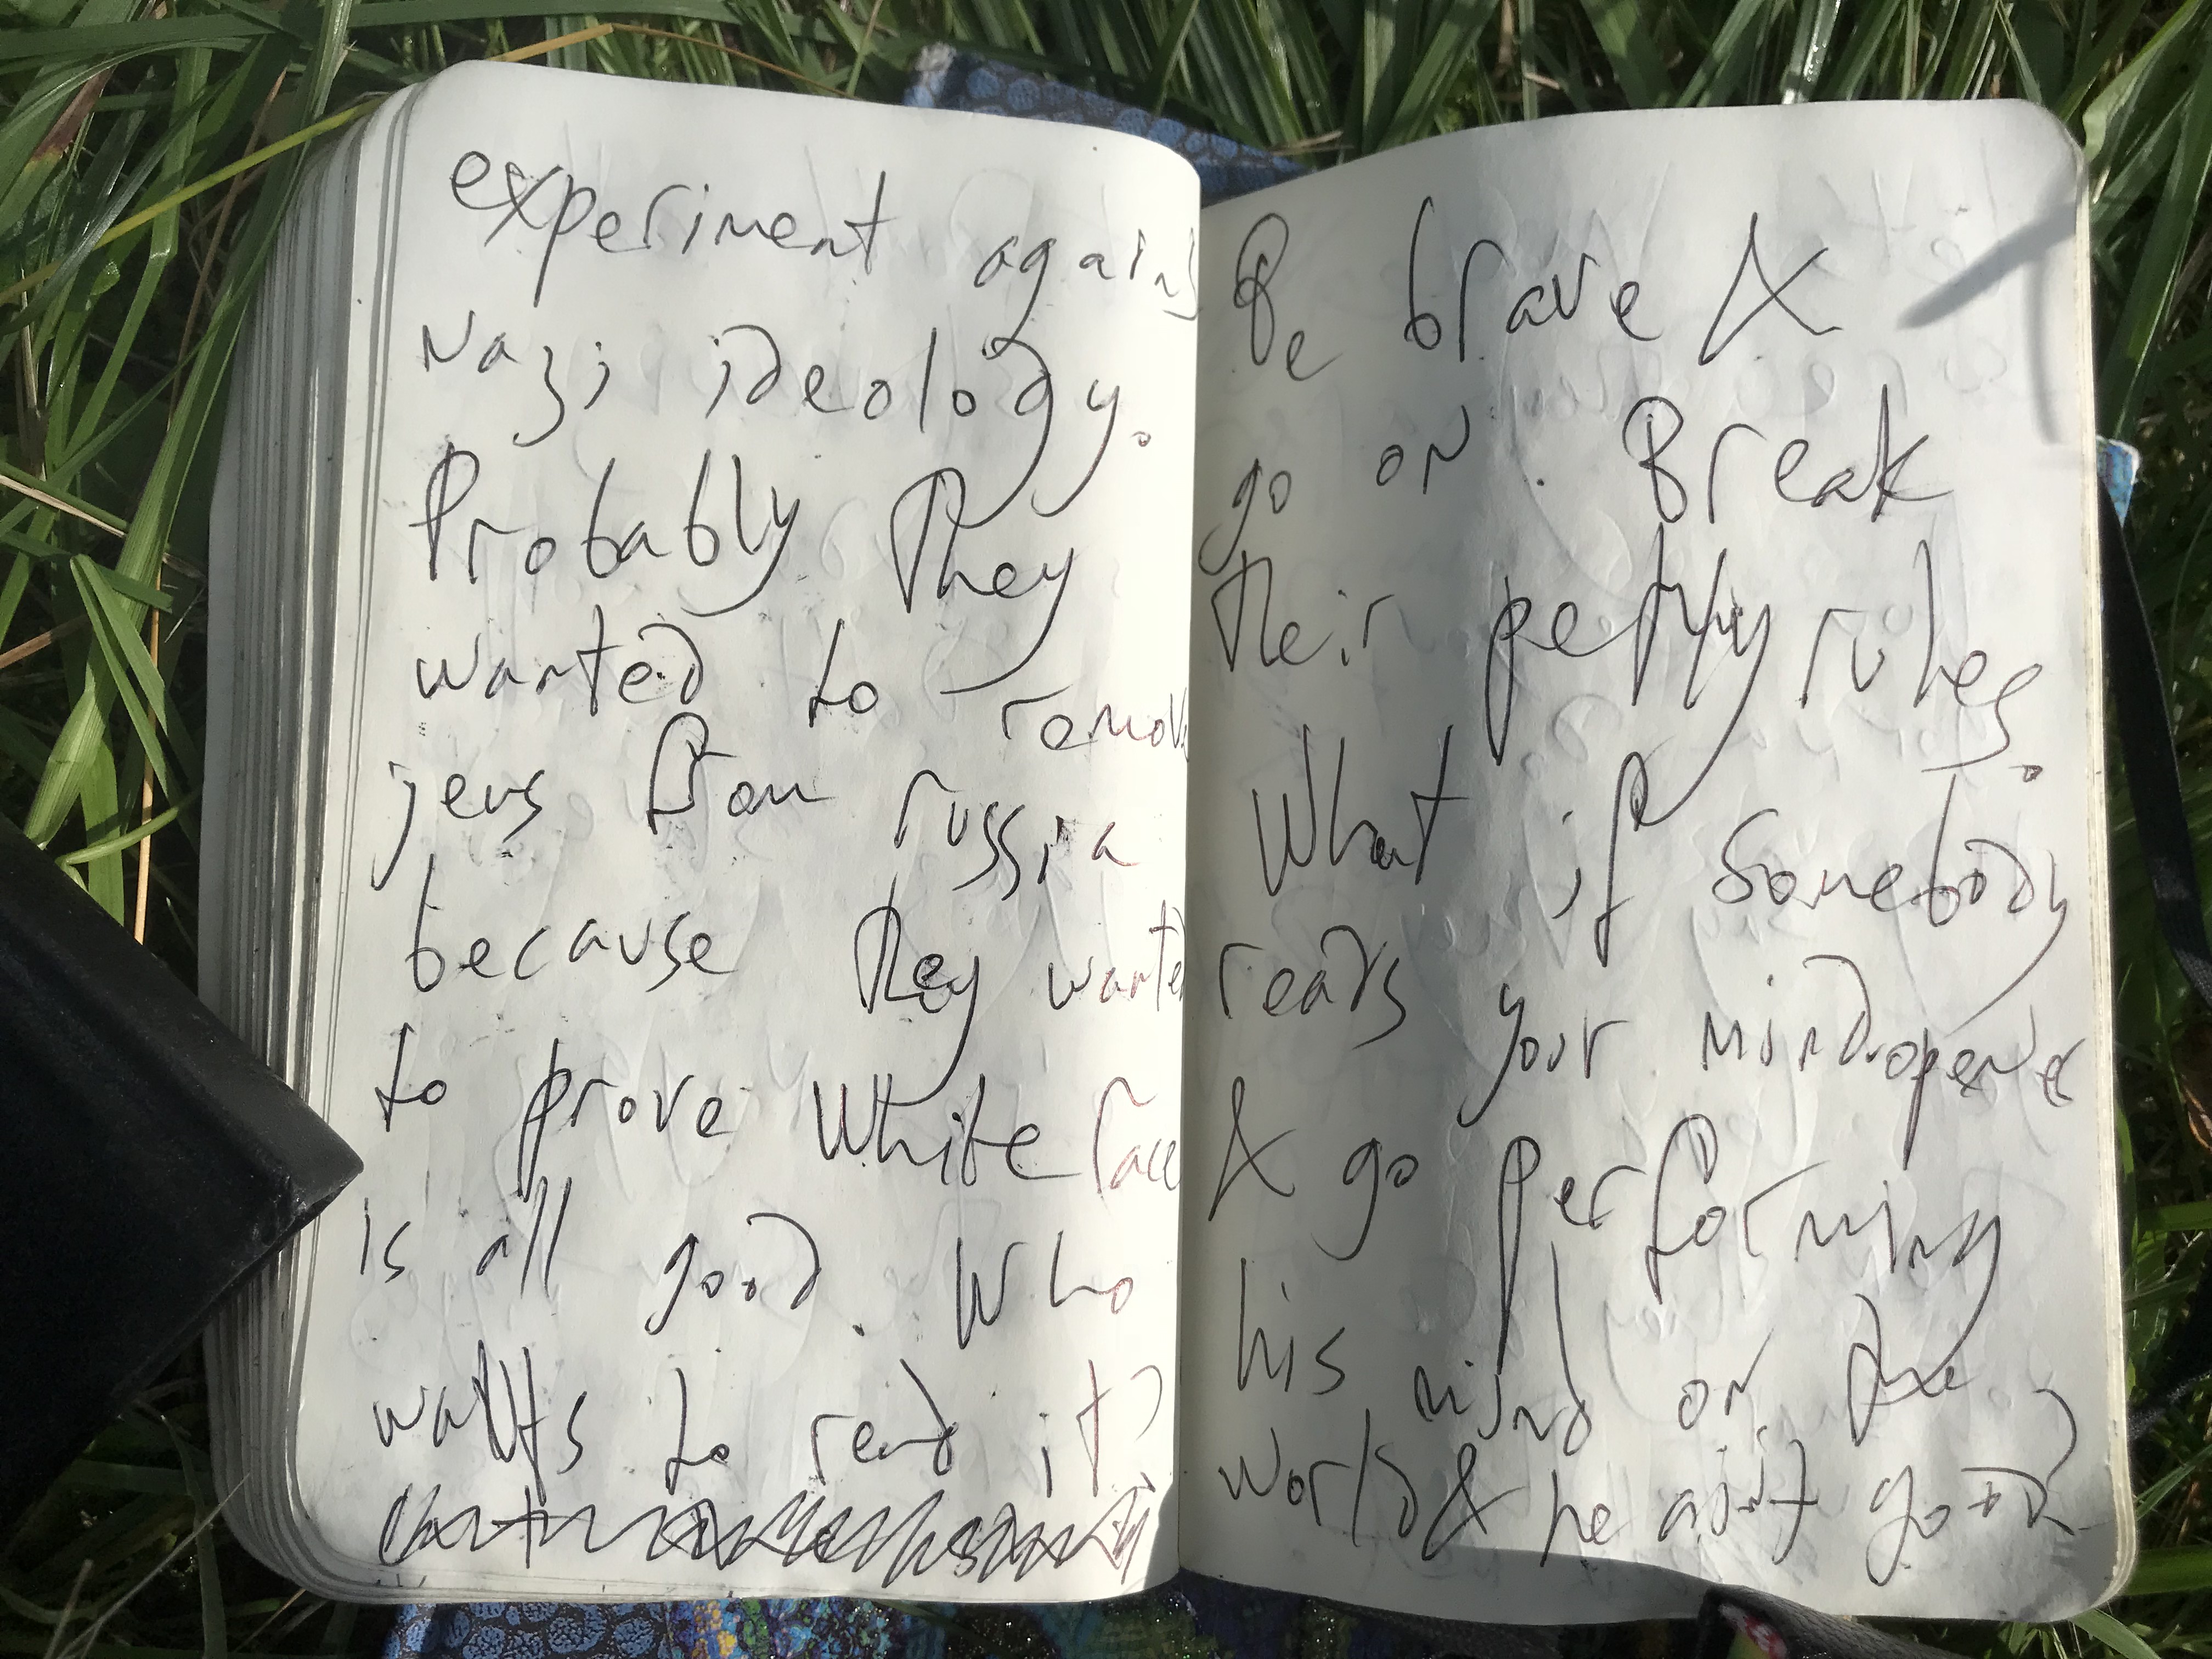 experiment again
nazi ideology.
Probably they
wanted to remov
jews from russia
because they wante
to prove white race
is all good. Who
wants to red it?
Be brave &
go on. Break
their peppy rules.
What if somebody
reads your mindopente
& go performing
his mind on the
world & he ain't got it